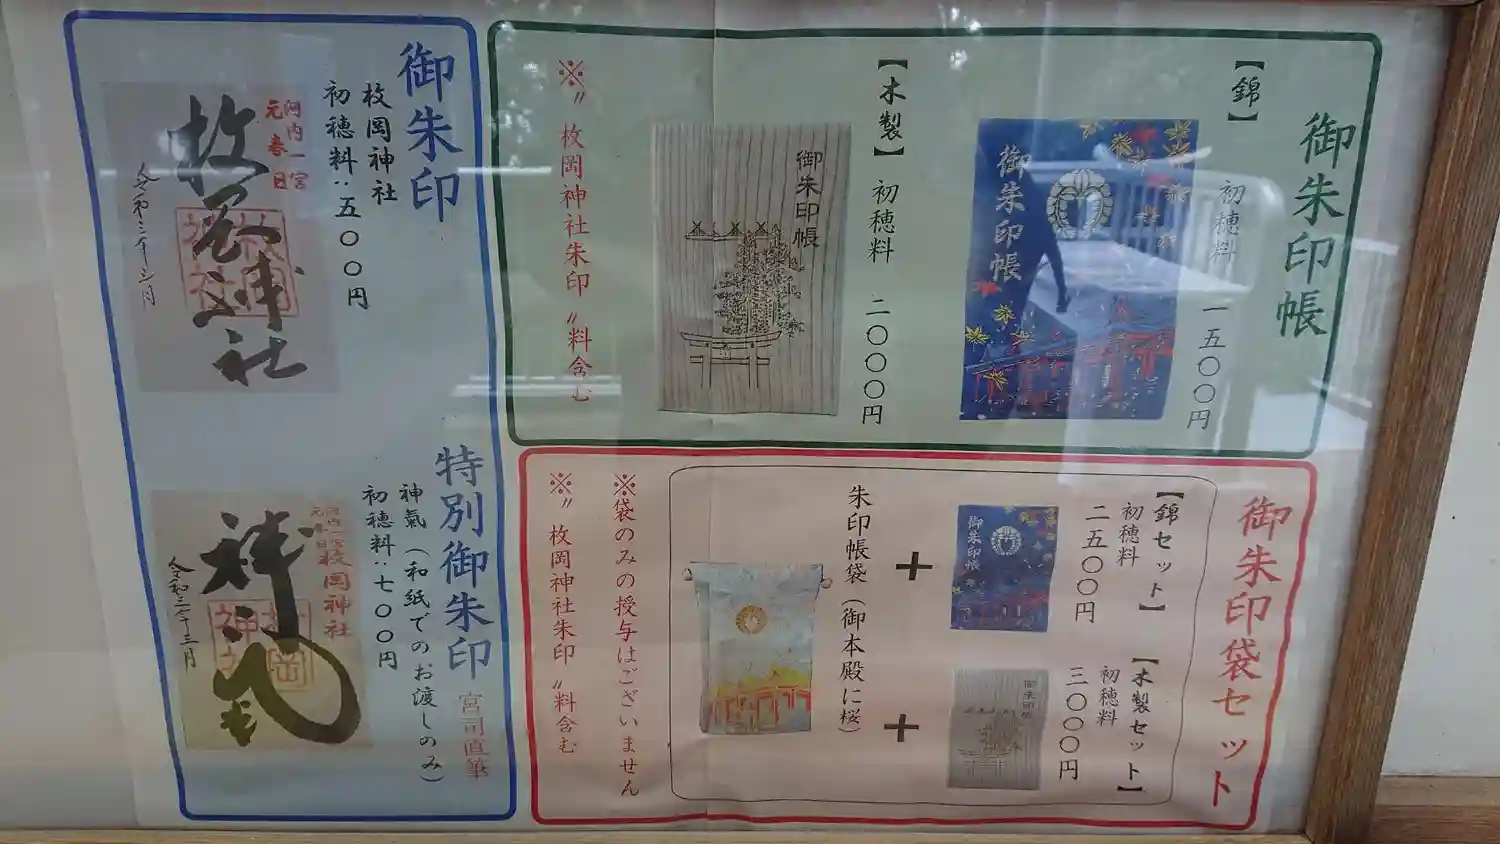 御朱印帳
【錦】
初穂料 一五〇〇円
御朱印帳
【木製】 初穂料 二〇〇〇円
御朱印帳
※〝枚岡神社朱印〟料含む
御朱印袋セット
【錦セット】
初穂料
二五〇〇円
御朱印帳
【木製セット】
初穂料
三〇〇〇円
御朱印帳
+
+
朱印帳袋（御本殿に桜）
※袋のみの授与はございません
※〝枚岡神社朱印〟料含む
御朱印
枚岡神社
初穂料：五〇〇円
河内一宮
元春日
枚岡神社
令和三年三月
特別御朱印 宮司直筆
神氣（和紙でのお渡しのみ）
初穂料：七〇〇円
河内一宮
元春日
枚岡神社
令和三年三月